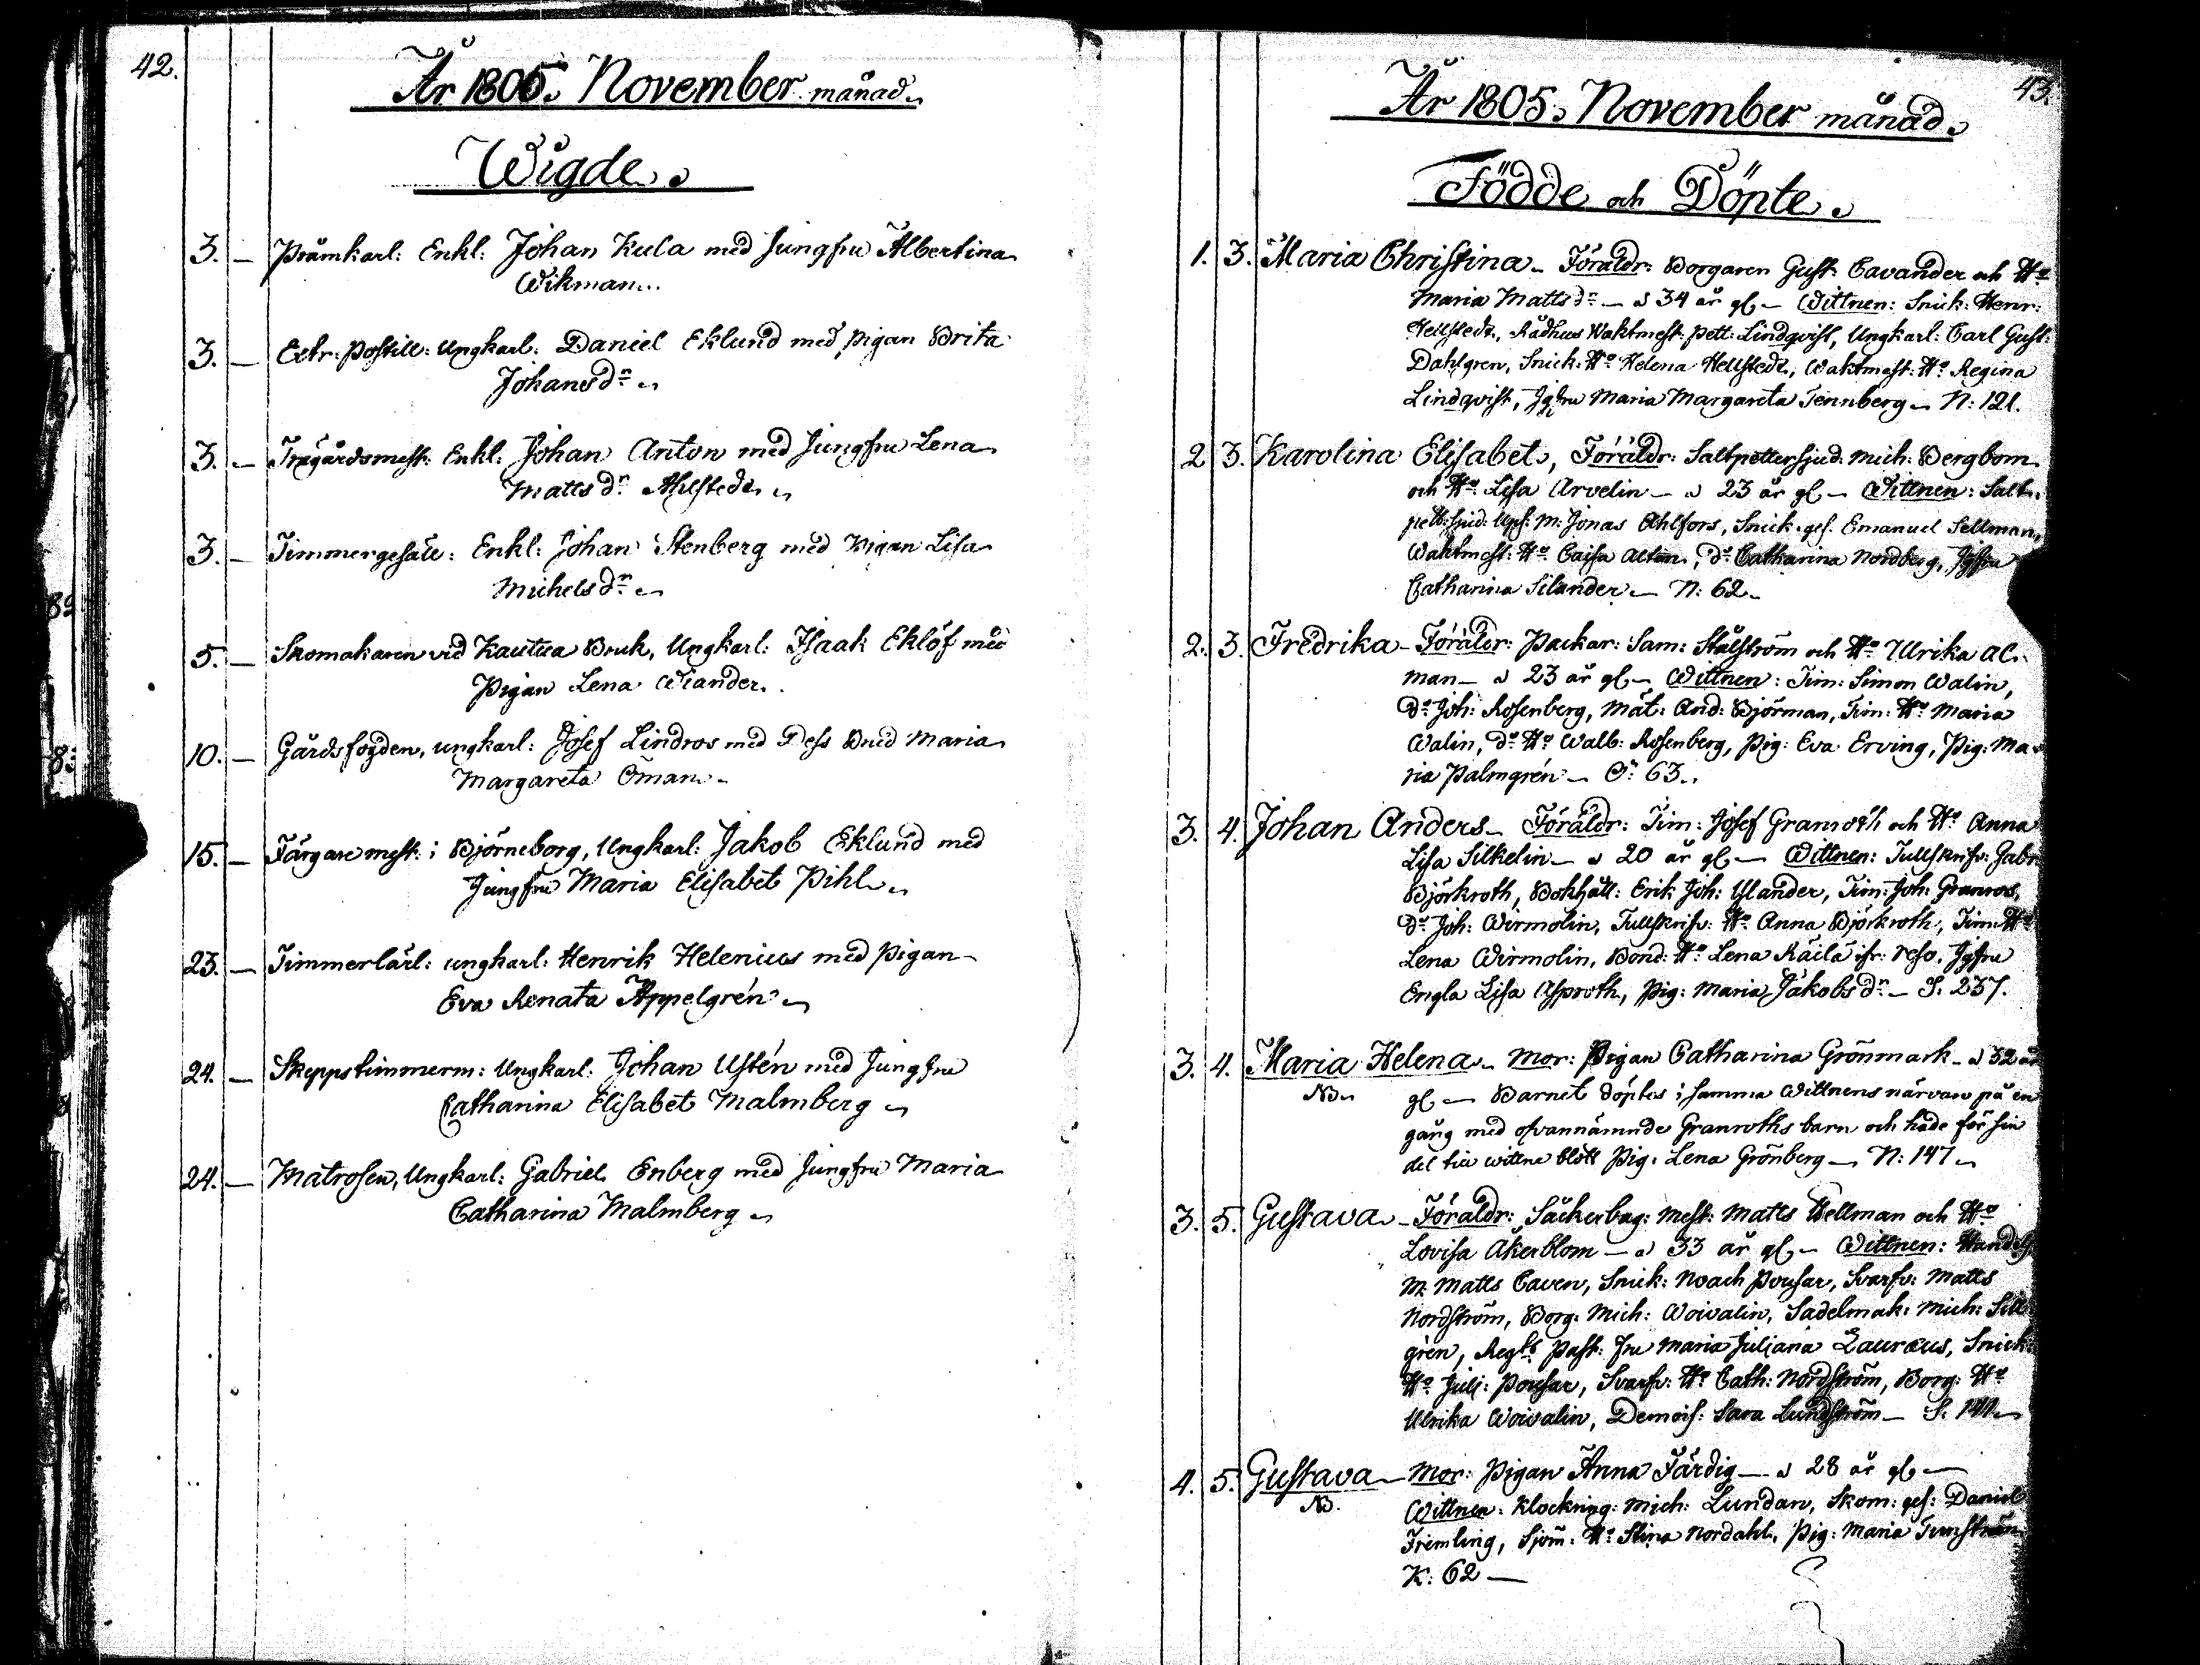 42.
År 1805. November månad.
Wigde.
3. — Pråmkarl: Enkl: Johan Kula med Jungfru Albertina
Wikman..
3. — Extr: Postill: Ungkarl: Daniel Eklund med pigan Brita
Johansdr.
3. — Trägårdsmest: Enkl: Johan Anton med Jungfru Lena
Mattsdr
3. — Timmergesäll: Enkl: Johan Stenberg med Pigan Lisa
Michelsdr.
5. — Skomakaren vid Kautua Bruk, Ungkarl: Isaak Eklöf med
Pigan Lena Wiander.
10. — Gårdsfogden, ungkarl: Josef Lindros med Dess Brud Maria
Margareta Öman.
15. — Färgaremest: i Björneborg, Ungkarl: Jakob Eklund med
Jungfru Maria Elisabet Pihl.
23. — Timmerlärl: ungkarl: Henrik Helenius med pigan
Eva Renata Appelgrén.
24. — Skeppstimmerm: Ungkarl: Johan Ustén med Jungfru
Catharina Elisabet Malmberg.
24. — Matrosen, Ungkarl: Gabriel Enberg med Jungfru Maria
Catharina Malmberg.
43.
År 1805. November månad.
Födde och Döpte.
1. 3. Maria Christina — Föräldr: Borgaren Gust: Cavander och Ho
Maria Mattsdr — 34 år gl — Wittnen: Snick: Henr:
Hellstedt, Rådhus Waktmest: Pett: Lindqvist, Ungkarl: Carl Gust:
Dahlgren, Snick: Ho Helena Hellstedt, Waktmest: Ho Regina
Lindqvist, Jgfru Maria Margareta Tennberg — N: 121.
2 3. Karolina Elisabet, Föräldr: Saltpettersjud: Mich: Bergbom
och Ho Lisa Arvelin — 23 år gl — Wittnen: Salt-
pett: sjud: Ups: M: Jonas Ahlfors, Snick: ges: Emanuel Sellman,
Waktmest: Ho Caisa Alten, Do Catharina Nordberg, Jgfru
Catharina Silander — N: 62.
2. 3. Fredrika — Föräldr: Packar: Sam: Stålström och Ho Ulrika Al-
man — 23 år gl — Wittnen: Tim: Simon Walin,
Do Joh: Rosenberg, Mät: And: Björman, Tim: Ho Maria
Walin, Do Ho Walb: Rosenberg, Pig: Eva Erving, Pig: Ma-
ria Palmgrén — 63.
3. 4. Johan Anders — Föräldr: Tim: Josef Granroth och Ho Anna
Lisa Silkelin — 20 år gl — Wittnen: Tullskrifv: Gabr
Björkroth, Bokhåll: Erik Joh: Ylander, Tim: Joh: Granros,
Do Joh: Wirmolin, Tullskrifv: Ho Anna Björkroth, Tim: Ho
Lena Wirmolin, Bond: Ho Lena Räilä ifr: Reso, Jgfru
Engla Lisa Asproth, Pig: Maria Jakobsdr — S: 237.
3. 4. Maria Helena — Mor: Pigan Catharina Grönmark — 32 år
NB. gl — Barnet döptes i samma Wittnens närvaro på en
gång med ofvannämnde Granroths barn och hade för sin
del till wittne blott Pig: Lena Grönberg — N: 147.
3. 5. Gustava — Föräldr: Såckerbag: Mest: Matts Hellman och Ho
Lovisa Åkerblom — 33 år gl — Wittnen: Handels
M: Matts Caven, Snick: Noach Pousar, Svarfv: Matts
Nordström, Borg: Mich: Woivalin, Sadelmak: Mich: Sill-
grén, Regts Past: fru Maria Juliana Lauraeus, Snick:
Ho Juli: Pousar, Svarfv: Ho Cath: Nordström, Borg: Ho
Ulrika Woivalin, Demois: Sara Lundström — S:
4. 5. Gustava — Mor: Pigan Anna Färdig — 28 år gl —
NB. Wittnen: Klockring: Mich: Lundan, Skom: ges: Daniel
Fremling, Sjöm: Ho Stina Nordahl, Pig: Maria Tunström
K: 62 —